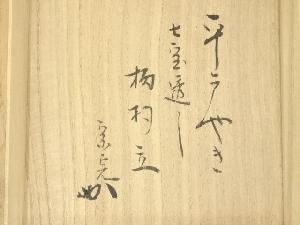 平戸やき
七宝透し
柄杓立